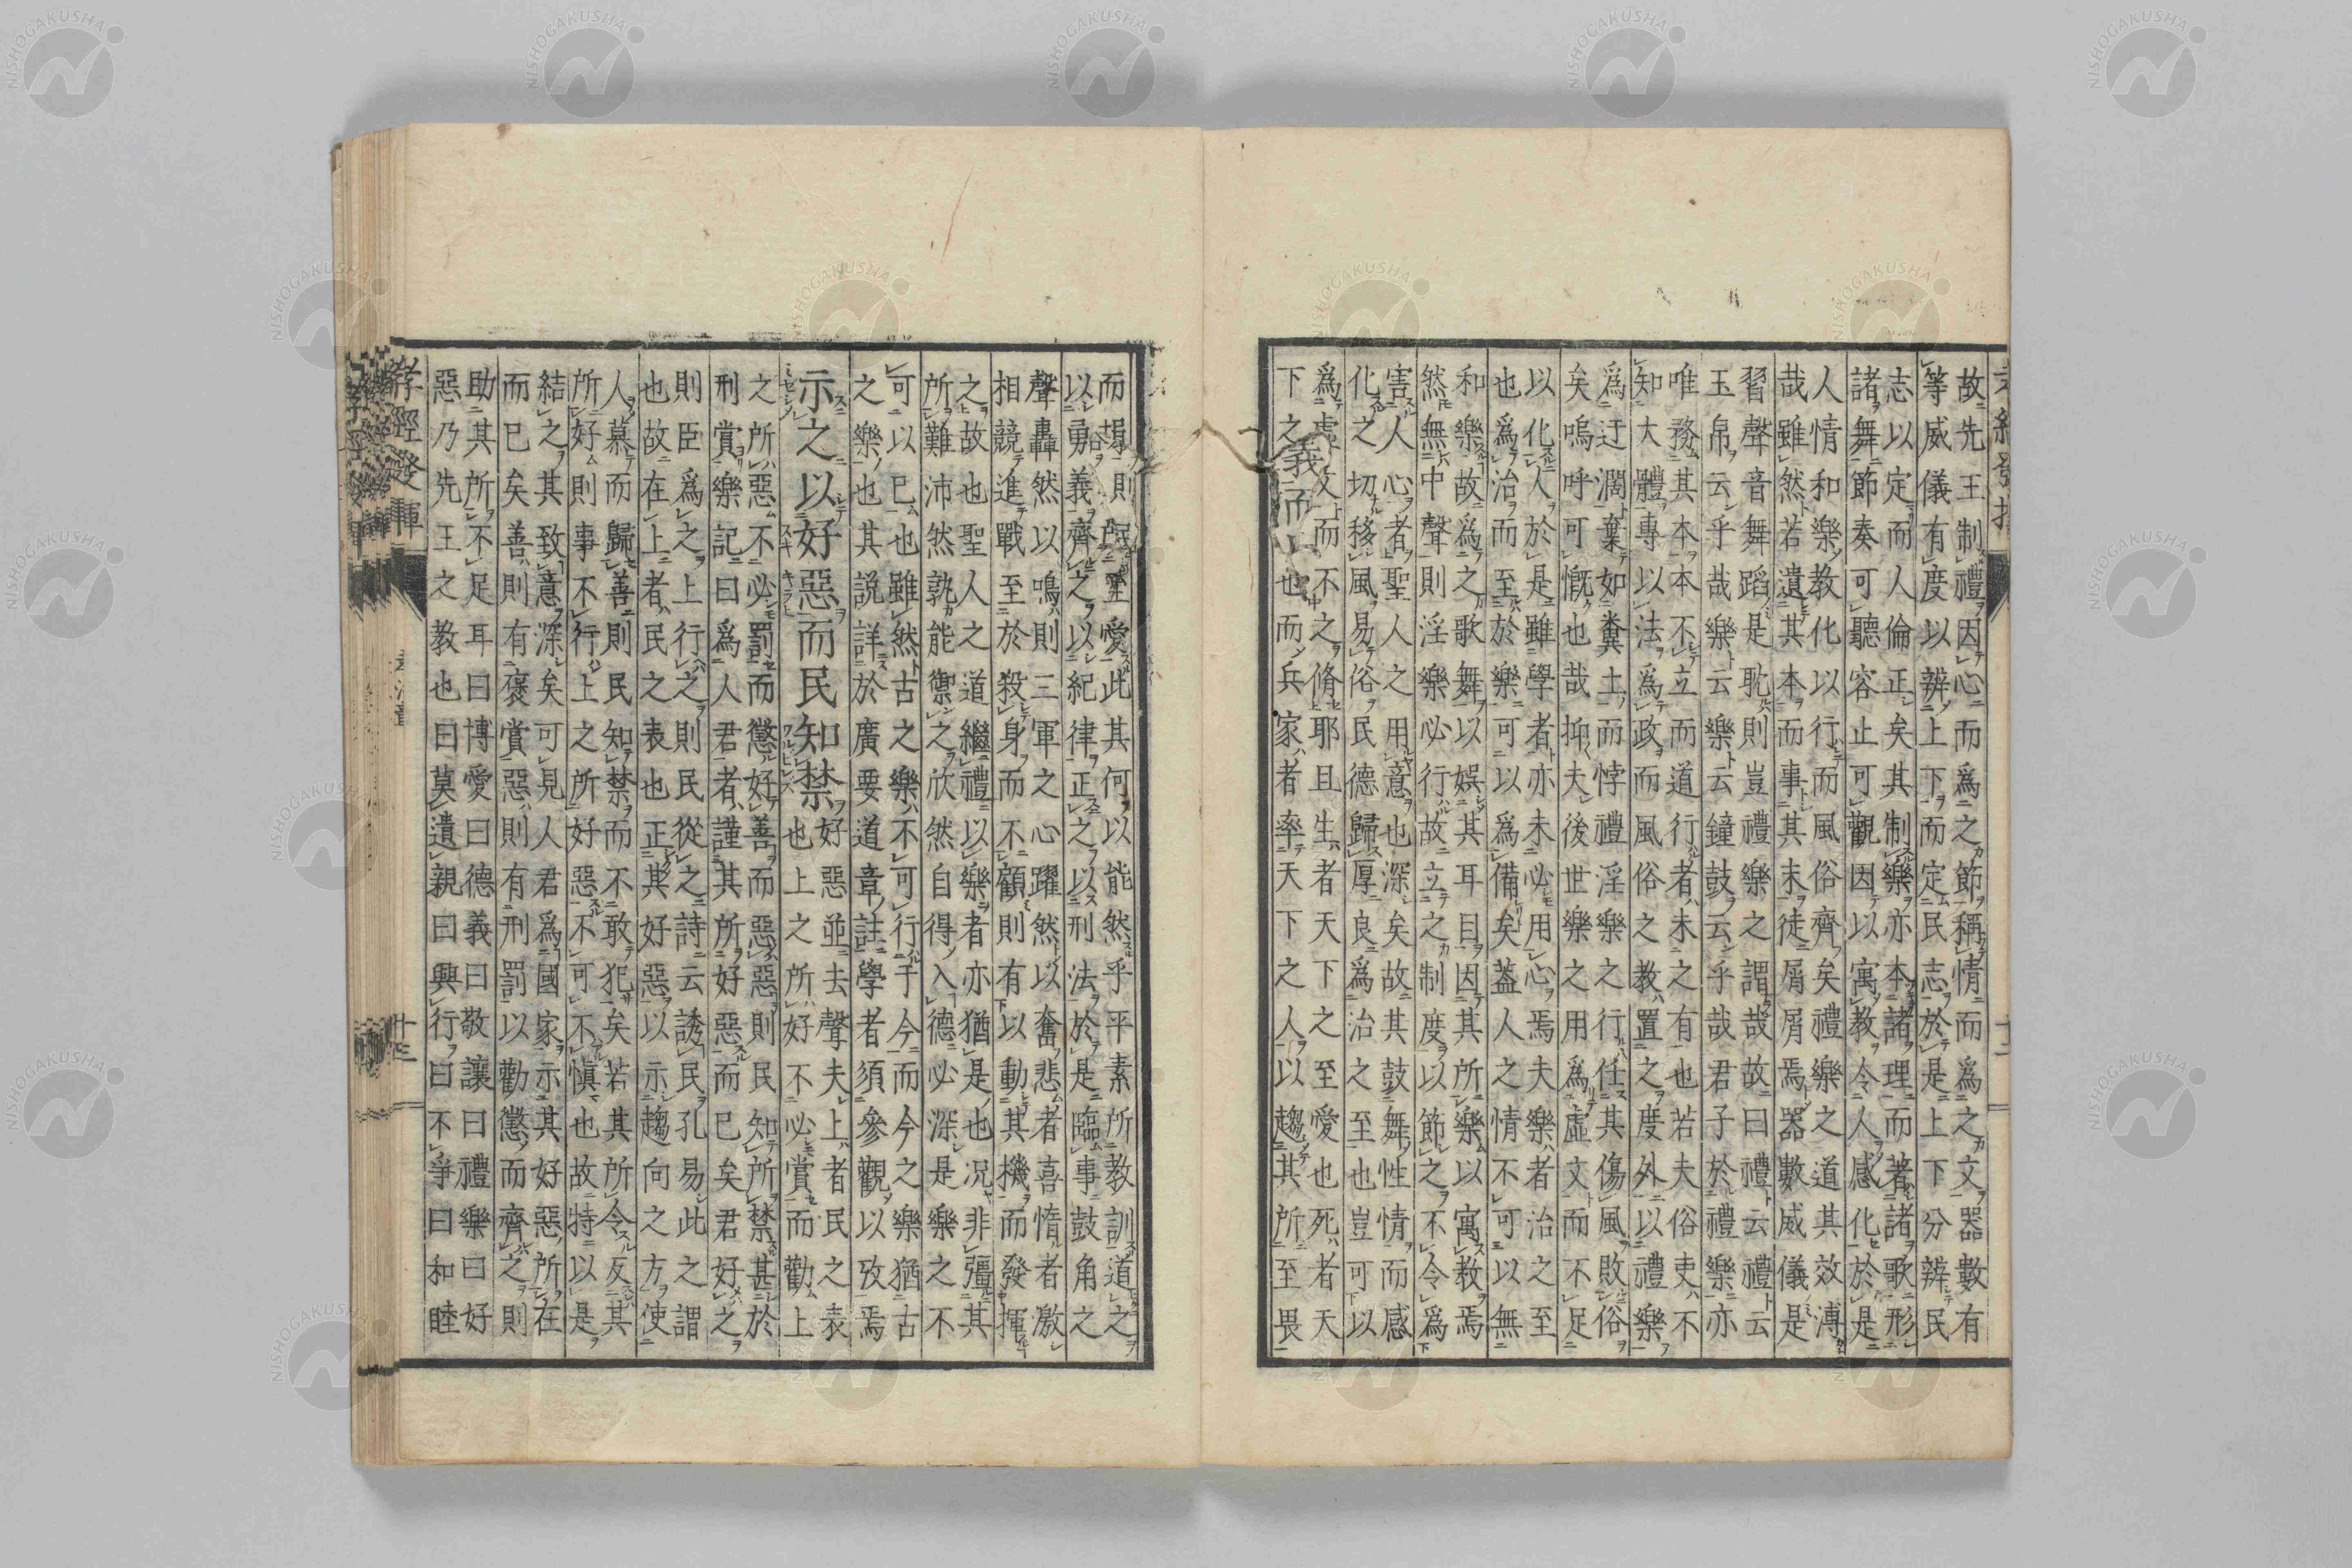 故先王制禮因心而爲之節稱情而爲之文器數有
等威儀有度以辨上下而定民志於是上下分辨民
志以定而人倫正矣其制樂亦本諸理而著諸歌形
諸舞節奏可聽容止可觀因以寓教令人感化於是
人情和樂教化以行而風俗齊矣禮樂之道其效溥
哉雖然若遺其本而事其末徒屑屑焉器數威儀是
習聲音舞蹈是耽則豈禮樂之謂哉故曰禮云禮云
玉帛云乎哉樂云樂云鐘鼓云乎哉君子於禮樂亦
唯務其本本不立而道行者未之有也若夫俗吏不
知大體專以法爲政而風俗之教置之度外以禮樂
爲迂濶棄如糞土而悖禮淫樂之行任其傷風敗俗
矣嗚呼可慨也哉抑夫後世樂之用爲虛文而不足
以化人於是雖學者亦未必用心焉夫樂者治之至
也爲治而至於樂可以爲備矣蓋人之情不可以無
和樂故爲之歌舞以娯其耳目因其所樂以寓教焉
然無中聲則淫樂必行故立之制度以節之不令爲
害人心者聖人之用意也深矣故其鼓舞性情而感
化之切移風易俗民德歸厚良爲治之至也豈可以
爲虛文而不之脩耶且生者天下之至愛也死者天
下之也而兵家者率天下之人以趨其所至畏
而則至愛此其何以能然乎平素所教訓道之
以勇義齊之以紀律正之以刑法於是臨事鼓角之
聲轟然以鳴則三軍之心躍然以奮悲者喜惰者激
相競進戰至於殺身而不顧則有以動其機而發揮
之故也聖人之道繼禮以樂者亦猶是也况非彊其
所難沛然孰能禦之欣然自得入德必深是樂之不
可以已也雖然古之樂不可行于今而今之樂猶古
之樂也其説詳於廣要道章註學者須參觀以攷焉
示之以好惡而民知禁
好惡並去聲夫上者民之表
也上之所好不必賞而勸上
之所惡不必罰而懲好善而惡惡則民知所禁甚於
刑賞樂記曰爲人君者謹其所好惡而已矣君好之
則臣爲之上行之則民從之詩云誘民孔易此之謂
也故在上者民之表也正其好惡以示趨向之方使
人慕而歸善則民知禁而不敢犯矣若其所令反其
所好則事不行上之所好惡不可不愼也故特以是
結之其致意深矣可見人君爲國家示其好惡所在
而已矣善則有褒賞惡則有刑罰以勸懲而齊之則
助其所不足耳曰博愛曰德義曰敬讓曰禮樂曰好
惡乃先王之教也曰莫遺親曰興行曰不爭曰和睦
孝經發揮
十三